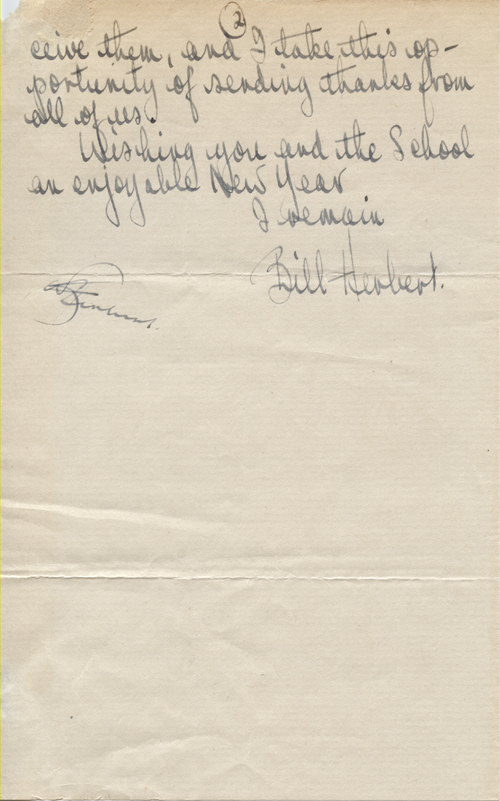 2
ceive them, and I take this op-
portunity of sending thanks from
all of us.
Wishing you and the School
an enjoyable New Year
I remain
Bill Herbert.